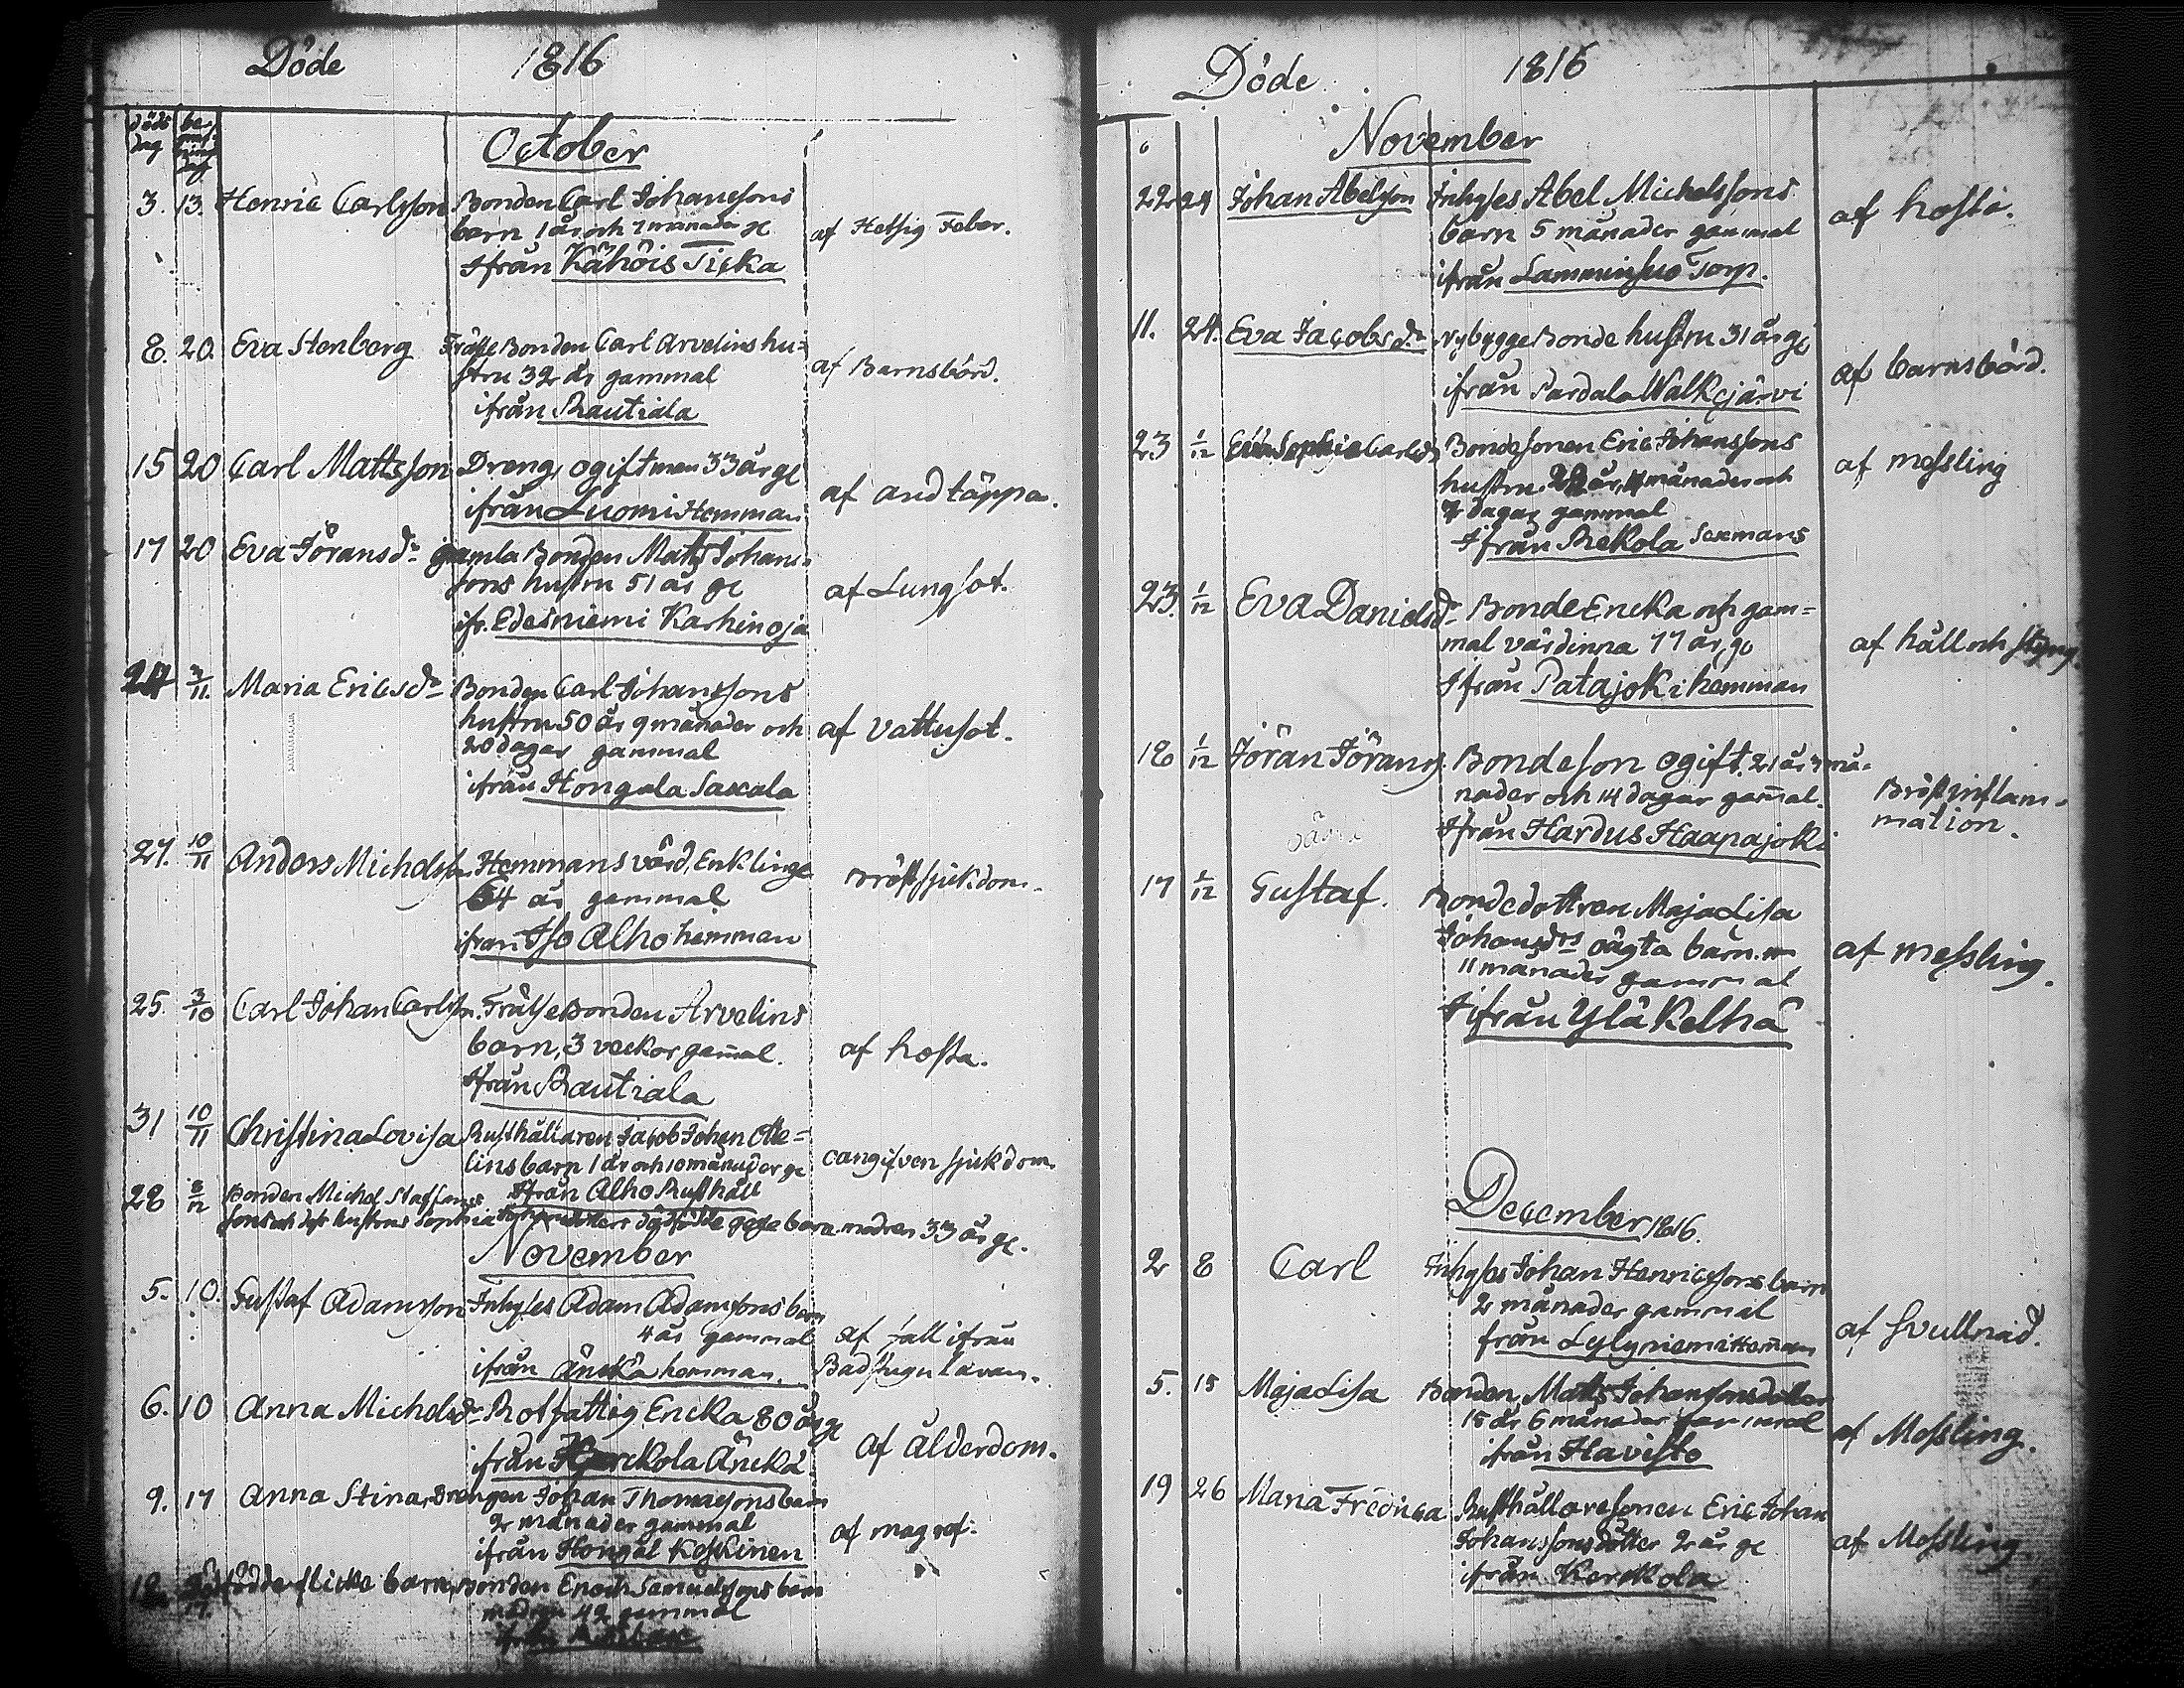 Döde 1816
döds dag
October
3. 13. Henric Carlsson Bonden Carl Johanssons
barn 1 år och 7 månader ge af Hetsig Feber.
Ifrån Kähöis Tiska
8. 20. Eva Stenberg Frälse Bonden Carl Arvelins hu-
stru 32 år gammal af Barnsbörd.
ifrån Rautiala
15 20 Carl Mattsson Dreng, ogift man 33 år ge
ifrån Luomi Hemman af andtäppa.
17 20 Eva Jöransdr gamla Bonden Matts Johans-
sons hustru 51 år ge af Lungsot.
ifr. Edesniemi Karhinoja
24 3/11 Maria Ericsdr Bonden Carl Johanssons
hustru 50 år 9 månader och af vattusot.
20 dagar gammal
ifrån Hongala Saxala
27. 10/11 Anders Michelss. Hemmansvärd, Enklinge
64 år gammal Bröstsjukdom.
ifran Iso Alho hemman
25. 3/10 Carl Johan Carlss. Frälsebonden Arvelins
barn, 3 veckor gamal. af hosta.
Ifrån Rautiala
31 10/11 Christina Lovisa Rusthållaren Jacob Johan Otte-
lins barn 1 år och 10 månader ge oangifven sjukdom.
Ifrån Alho Rusthåll
28 8/12 Bonden Michel Staffans
sons och dess hustrus Sophia dödfödde barn modren 33 år ge.
November
5. 10. Gustaf Adamsson Inhyses Adam Adamssons barn
4 år gammal af fall ifrån
ifrån Änckä hemman. Badstugu lavan.
6. 10 Anna Michelsdr Rotfattig Encka 80 år ge
ifrån Kerckola Äncka af ålderdom.
9. 17 Anna Stina, Drengen Johan Thomassons barn
2 månader gammal af magref.
ifrån Hongal Koskinen
18 dödfödde flicke barn, Bonden Enoch Samuelssons barn
modren 42 gammal
Döde 1816
November
22 24 Johan Abelsson Inhyses Abel Michelssons
barn 5 månader gammal af hosta.
ifrån Lamminsuo Torp.
11. 24. Eva Jacobsdr Nybygge Bonde hustru 31 år ge
ifrån Pardala Walkjärvi af barnsbörd.
23 1/12 Sophia Carlsdr Bondesonen Eric Johanssons
hustru 22 år, 4 månader och af messling
7 dagar gammal
Ifrån Rekola Sexmans
23. 1/12 Eva Danielsdr Bonde Encka och gam-
mal värdinna 77 år, ge af håll och styng.
Ifrån Patajoki hemman
18 1/12 Jöran Jörans. Bondeson ogift. 21 år 7 må-
nader och 14 dagar gamal. Bröstinflam-
mation.
Ifrån Hardus Haapajoki
17 1/12 Gustaf. Bondedottren Maja Lisa
Johansdrs oägta barn.
11 månader gammal af messling.
Ifrån Ylä Kelhä
December 1816.
2 8 Carl Inhyses Johan Henricssons barn
2 månader gammal
från Lylyniemi Heman af svullnad.
5. 15 Maja Lisa Bonden Matts Johanssons dotter
15 år 6 månader gammal af Messling.
ifrån Havisto
19 26 Maria Fredrica Rusthållaresonen Eric Johan
Johanssons dotter 2 år ge af Messling.
ifrån Kerckola